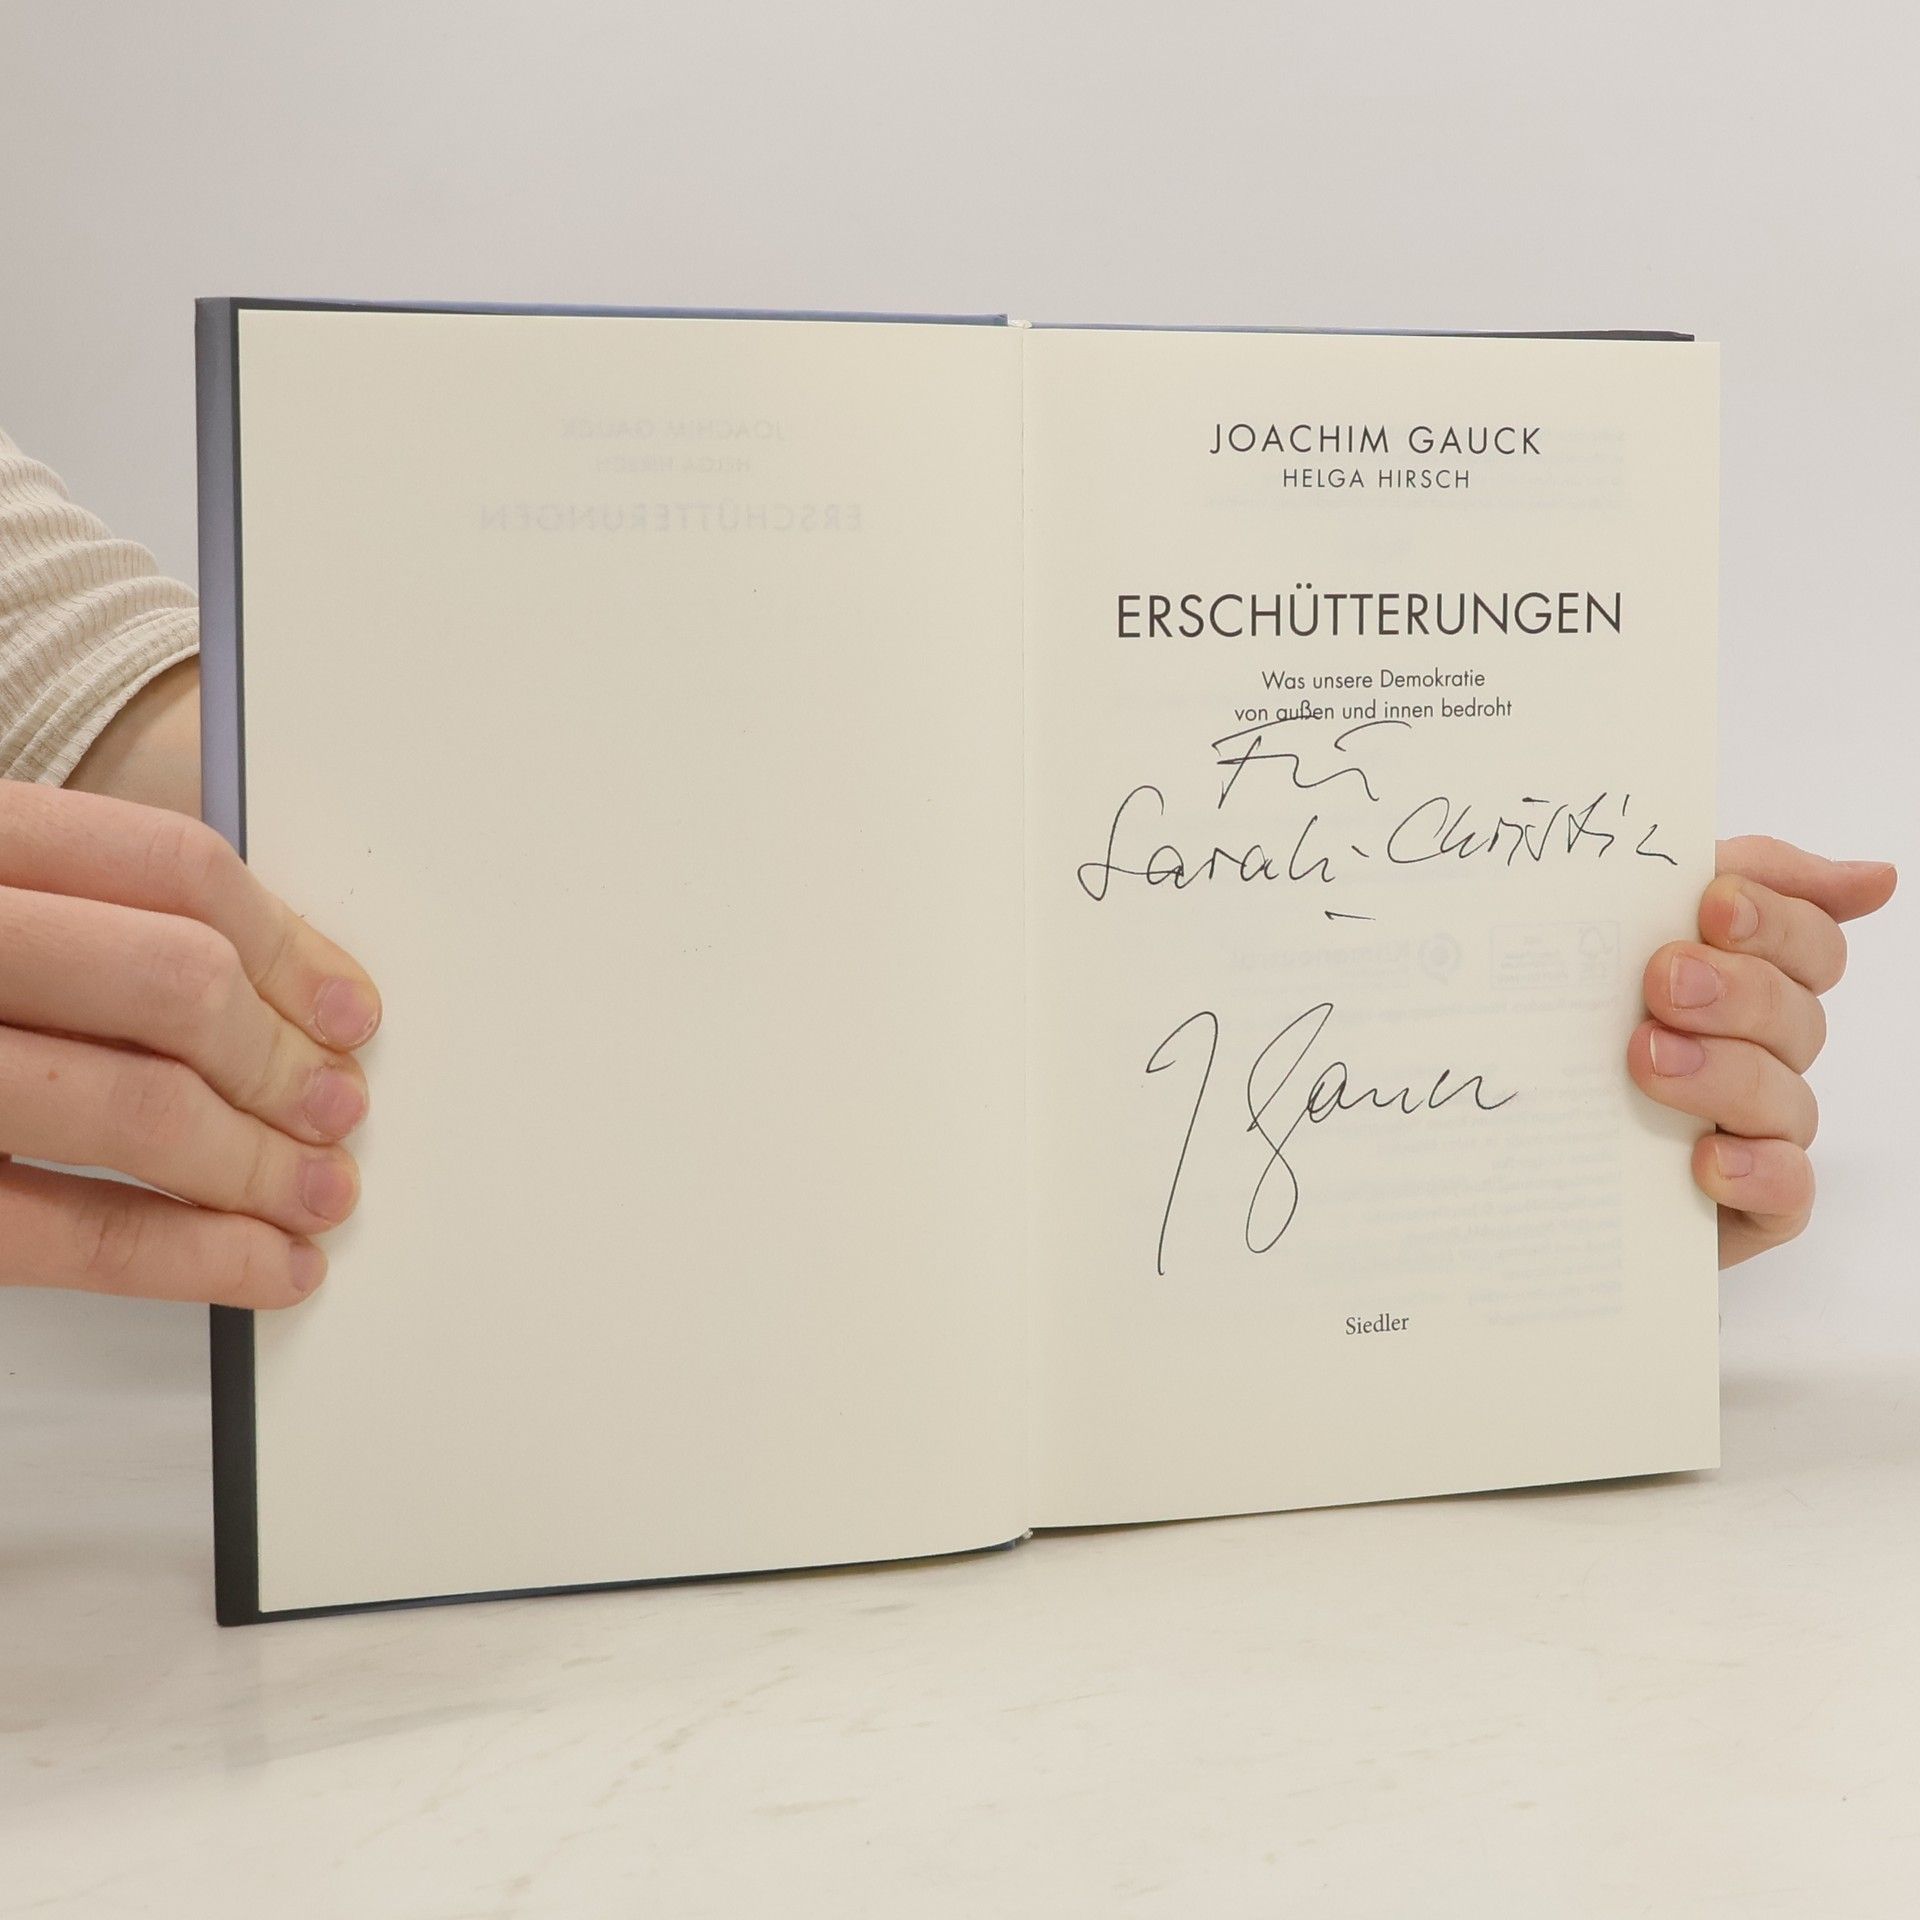 JOACHIM GAUCK
HELGA HIRSCH
ERSCHÜTTERUNGEN
Was unsere Demokratie
von außen und innen bedroht
Für
Sarah-Christin
J Gauck
Siedler